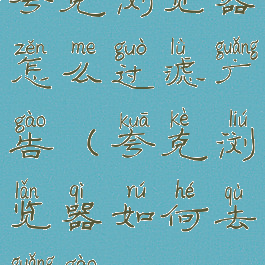 夸克浏览器
zěn me guò lǜ guǎng
怎么过滤广
gào kuā kè liú
告（夸克浏
lǎn qì rú hé qù
览器如何去
guǎng gào